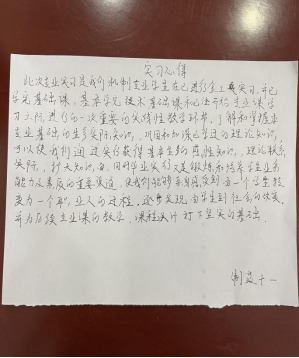 实习心得
此次专业实习是我们机制专业学生在已进行金工实习，并已
学完基础课、基本学完技术基础课和已开始专业课学
习之际，进行的一次重要的实践性教学环节，了解和掌握本
专业基础的生产实际知识，巩固和加深已学过的理论知识，
可以使我们通过实习获得基本生产的感性知识，理论联系
实际，扩大知识面，同时专业实习又是锻炼和培养学生业务
能力及素质的重要渠道，使我们能够亲身感受到由一个学生转
变为一个职业人的过程，逐步实现由学生到社会的转变，
并为后续专业课的教学、课程设计打下坚实的基础
制造十一